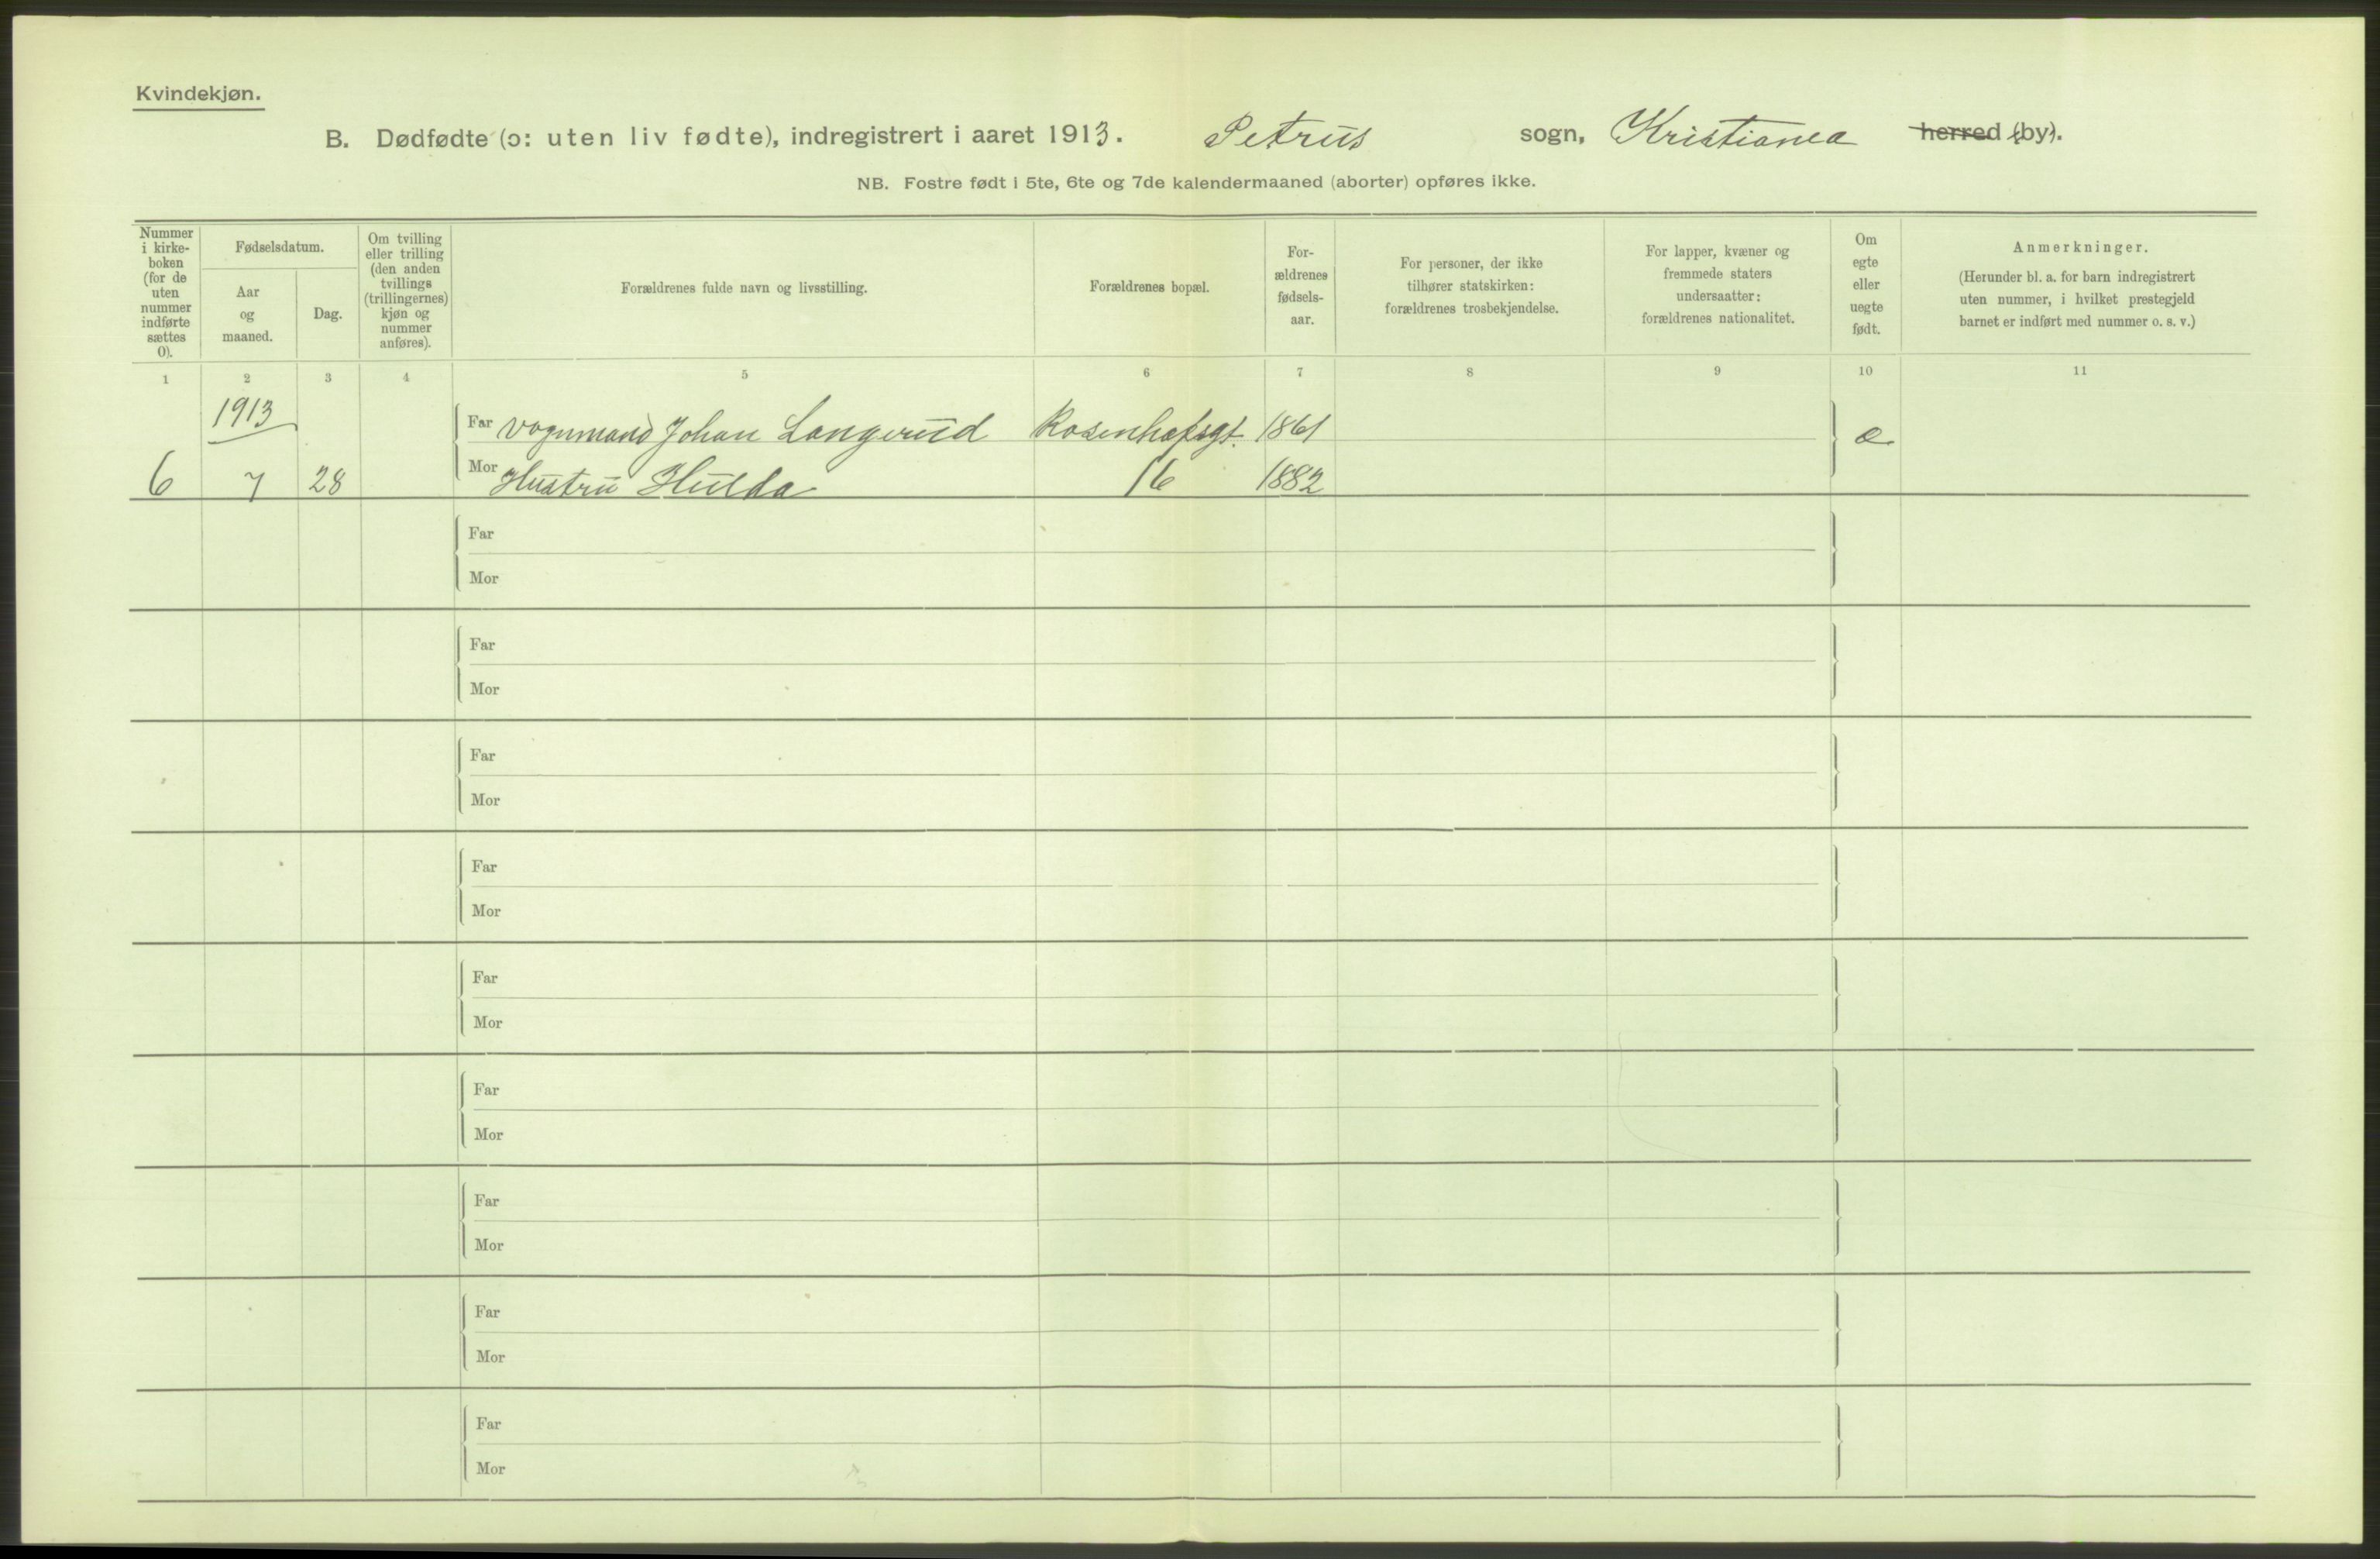 Kvindekjøn.
B. Dødfødte (ɔ: uten liv fødte), indregistrert i aaret 1913. Petrus sogn, Kristiania herred (by).
NB. Fostre født i 5te, 6te og 7de kalendermaaned (aborter) opføres ikke.
Nummer
i kirke-
boken
(for de
uten
nummer
indførte
sættes
0).
Fødselsdatum.
Aar
og
maaned.
Dag.
Om tvilling
eller trilling
(den anden
tvillings
(trillingernes)
kjøn og
nummer
anføres).
Forældrenes fulde navn og livsstilling.
Forældrenes bopæl.
For-
ældrenes
fødsels-
aar.
For personer, der ikke
tilhører statskirken:
forældrenes trosbekjendelse.
For lapper, kvæner og
fremmede staters
undersaatter:
forældrenes nationalitet.
Om
egte
eller
uegte
født.
Anmerkninger.
(Herunder bl. a. for barn indregistrert
uten nummer, i hvilket prestegjeld
barnet er indført med nummer o. s. v.)
1 2 3 4 5 6 7 8 9 10 11
1913
Far Vognmand Johan Langerud Rosenhofsgt. 1861 e
6 7 28 Mor Hustru Hulda 16 1882
Far
Mor
Far
Mor
Far
Mor
Far
Mor
Far
Mor
Far
Mor
Far
Mor
Far
Mor
Far
Mor